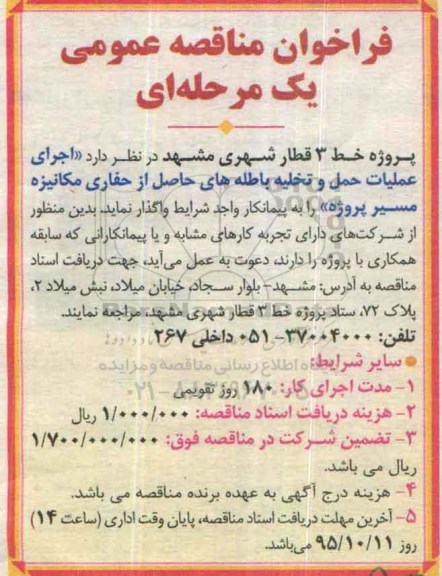 فراخوان مناقصه عمومی
یک مرحله‌ای
پروژه خط ۳ قطار شهری مشهد در نظر دارد «اجرای
عملیات حمل و تخلیه باطله های حاصل از حفاری مکانیزه
مسیر پروژه» را به پیمانکار واجد شرایط واگذار نماید. بدین منظور
از شرکت‌های دارای تجربه کارهای مشابه و یا پیمانکارانی که سابقه
همکاری با پروژه را دارند، دعوت به عمل می‌آید، جهت دریافت اسناد
مناقصه به آدرس: مشهد- بلوار سجاد، خیابان میلاد، نبش میلاد ۲،
پلاک ۷۲، ستاد پروژه خط ۳ قطار شهری مشهد، مراجعه نمایند.
تلفن: ۳۷۰۰۴۰۰۰-۰۵۱ داخلی ۲۶۷
سایر شرایط:
پایگاه اطلاع رسانی مناقصه و مزایده
۱- مدت اجرای کار: ۱۸۰ روز تقویمی
۲- هزینه دریافت اسناد مناقصه: ۱/۰۰۰/۰۰۰ ریال
۳- تضمین شرکت در مناقصه فوق: ۱/۷۰۰/۰۰۰/۰۰۰
ریال می باشد.
۴- هزینه درج آگهی به عهده برنده مناقصه می باشد.
۵- آخرین مهلت دریافت اسناد مناقصه، پایان وقت اداری (ساعت ۱۴)
روز ۹۵/۱۰/۱۱ می‌باشد.